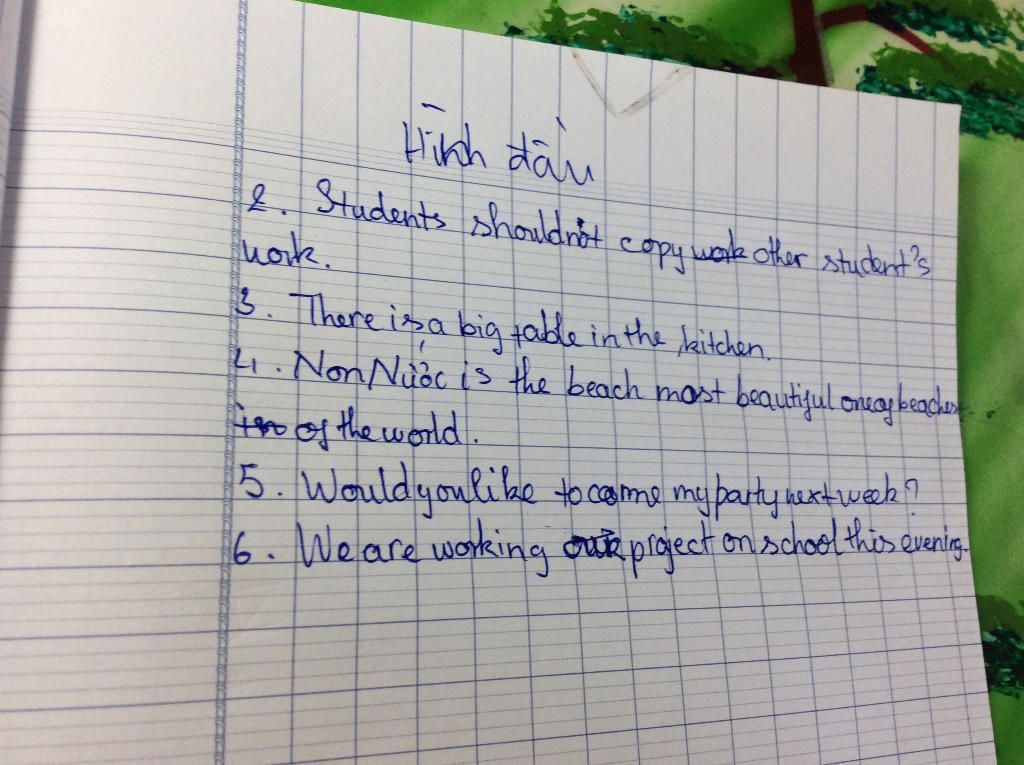 Hình đầu
2. Students shouldnot copy work other student's
work.
3. There is a big table in the kitchen.
4. Non Nước is the beach most beautiful one of beaches
of the world.
5. Would you like to come my party next week?
6. We are working our project on school this evening.